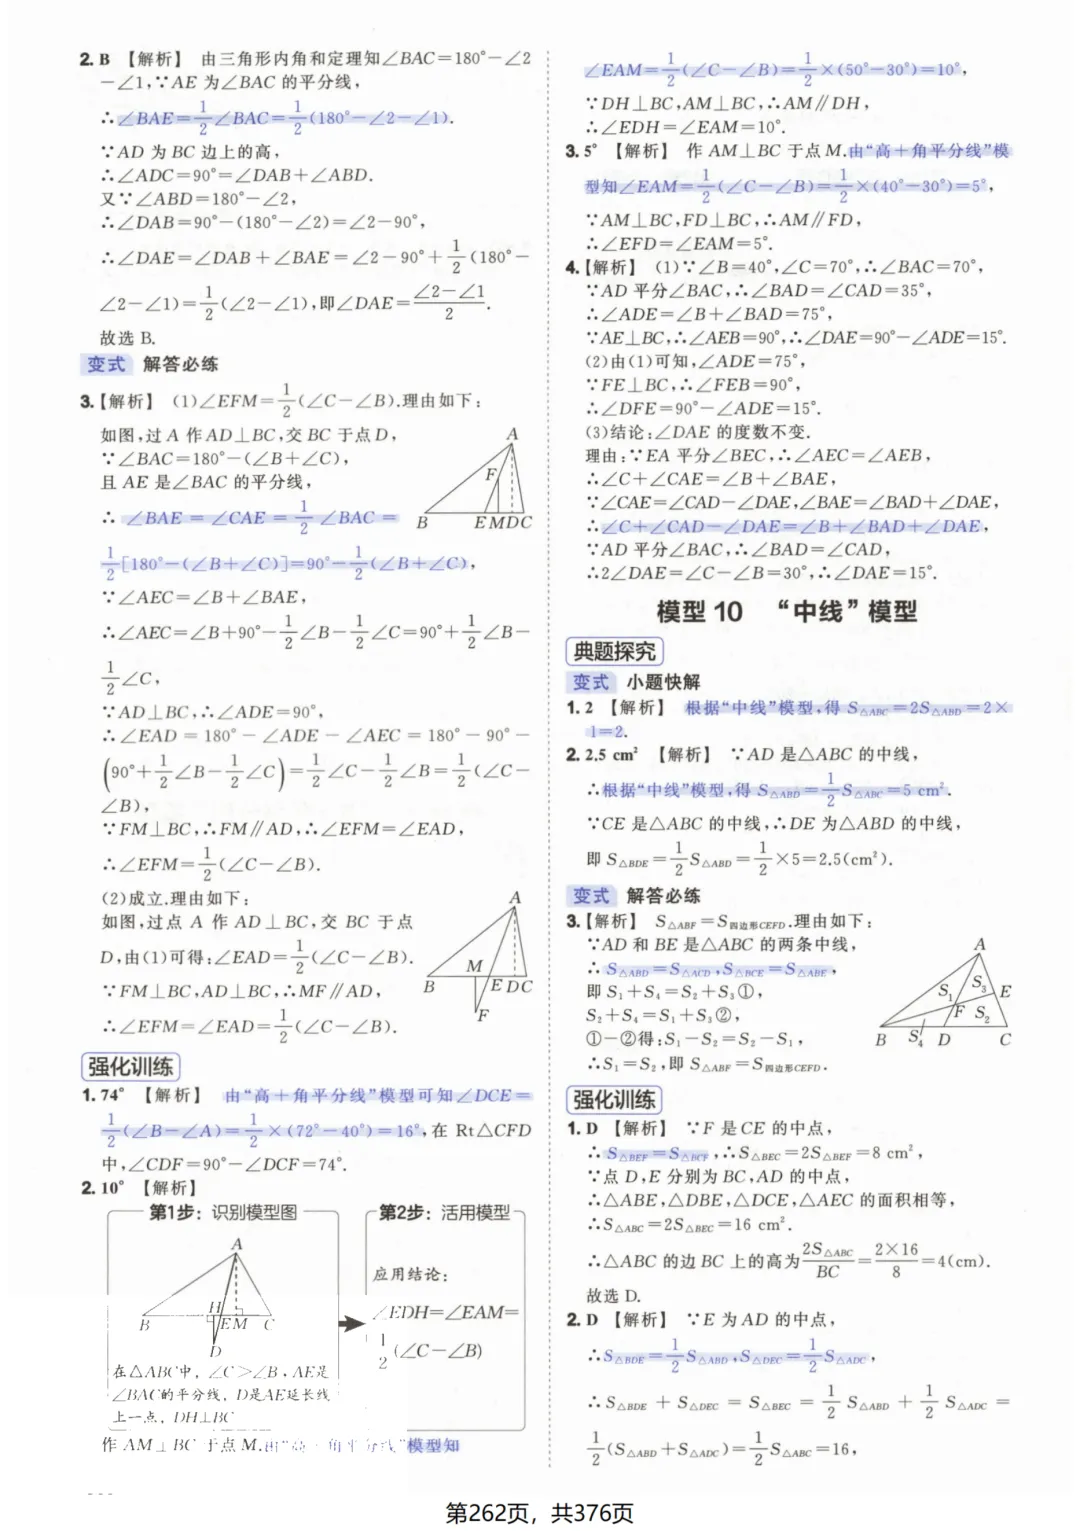 2. B 【解析】 由三角形内角和定理知∠BAC=180°-∠2
-∠1,∵AE 为∠BAC 的平分线,
∴∠BAE=1/2∠BAC=1/2(180°-∠2-∠1).
∵AD 为 BC 边上的高,
∴∠ADC=90°=∠DAB+∠ABD.
又∵∠ABD=180°-∠2,
∴∠DAB=90°-(180°-∠2)=∠2-90°,
∴∠DAE=∠DAB+∠BAE=∠2-90°+1/2(180°-
∠2-∠1)=1/2(∠2-∠1),即∠DAE=(∠2-∠1)/2.
故选 B.
变式 解答必练
3.【解析】 (1)∠EFM=1/2(∠C-∠B).理由如下:
如图,过 A 作 AD⊥BC,交 BC 于点 D,
∵∠BAC=180°-(∠B+∠C),
且 AE 是∠BAC 的平分线,
∴ ∠BAE=∠CAE=1/2∠BAC=
A
F
B E M D C
1/2[180°-(∠B+∠C)]=90°-1/2(∠B+∠C),
∵∠AEC=∠B+∠BAE,
∴∠AEC=∠B+90°-1/2∠B-1/2∠C=90°+1/2∠B-
1/2∠C,
∵AD⊥BC,∴∠ADE=90°,
∴∠EAD=180°-∠ADE-∠AEC=180°-90°-
(90°+1/2∠B-1/2∠C)=1/2∠C-1/2∠B=1/2(∠C-
∠B),
∵FM⊥BC,∴FM∥AD,∴∠EFM=∠EAD,
∴∠EFM=1/2(∠C-∠B).
(2)成立.理由如下:
如图,过点 A 作 AD⊥BC,交 BC 于点
D,由(1)可得:∠EAD=1/2(∠C-∠B).
∵FM⊥BC,AD⊥BC,∴MF∥AD,
∴∠EFM=∠EAD=1/2(∠C-∠B).
A
M
B E D C
F
强化训练
1. 74° 【解析】 由“高+角平分线”模型可知∠DCE=
1/2(∠B-∠A)=1/2×(72°-40°)=16°,在 Rt△CFD
中,∠CDF=90°-∠DCF=74°.
2. 10° 【解析】
第1步：识别模型图
A
H
B E M C
D
在△ABC中，∠C>∠B，AE是
∠BAC的平分线，D是AE延长线
上一点，DH⊥BC
第2步：活用模型
应用结论：
∠EDH=∠EAM=
1/2(∠C-∠B)
作 AM⊥BC 于点 M.由“高+角平分线”模型知
∠EAM=1/2(∠C-∠B)=1/2×(50°-30°)=10°,
∵DH⊥BC,AM⊥BC,∴AM∥DH,
∴∠EDH=∠EAM=10°.
3. 5° 【解析】 作 AM⊥BC 于点 M.由“高+角平分线”模
型知∠EAM=1/2(∠C-∠B)=1/2×(40°-30°)=5°,
∵AM⊥BC,FD⊥BC,∴AM∥FD,
∴∠EFD=∠EAM=5°.
4.【解析】 (1)∵∠B=40°,∠C=70°,∴∠BAC=70°,
∵AD 平分∠BAC,∴∠BAD=∠CAD=35°,
∴∠ADE=∠B+∠BAD=75°,
∵AE⊥BC,∴∠AEB=90°,∴∠DAE=90°-∠ADE=15°.
(2)由(1)可知,∠ADE=75°,
∵FE⊥BC,∴∠FEB=90°,
∴∠DFE=90°-∠ADE=15°.
(3)结论:∠DAE 的度数不变.
理由:∵EA 平分∠BEC,∴∠AEC=∠AEB,
∴∠C+∠CAE=∠B+∠BAE,
∵∠CAE=∠CAD-∠DAE,∠BAE=∠BAD+∠DAE,
∴∠C+∠CAD-∠DAE=∠B+∠BAD+∠DAE,
∵AD 平分∠BAC,∴∠BAD=∠CAD,
∴2∠DAE=∠C-∠B=30°,∴∠DAE=15°.
模型 10 “中线”模型
典题探究
变式 小题快解
1. 2 【解析】 根据“中线”模型,得 S△ABC=2S△ABD=2×
1=2.
2. 2.5 cm² 【解析】 ∵AD 是△ABC 的中线,
∴根据“中线”模型,得 S△ABD=1/2S△ABC=5 cm².
∵CE 是△ABC 的中线,∴DE 为△ABD 的中线,
即 S△BDE=1/2S△ABD=1/2×5=2.5(cm²).
变式 解答必练
3.【解析】 S△ABF=S四边形CEFD.理由如下:
∵AD 和 BE 是△ABC 的两条中线,
∴S△ABD=S△ACD,S△BCE=S△ABE,
即 S₁+S₄=S₂+S₃①,
S₂+S₄=S₁+S₃②,
①-②得:S₁-S₂=S₂-S₁,
∴S₁=S₂,即 S△ABF=S四边形CEFD.
A
S₁ S₃ E
F S₂
B S₄ D C
强化训练
1. D 【解析】 ∵F 是 CE 的中点,
∴S△BEF=S△BCF,∴S△BEC=2S△BEF=8 cm²,
∵点 D,E 分别为 BC,AD 的中点,
∴△ABE,△DBE,△DCE,△AEC 的面积相等,
∴S△ABC=2S△BEC=16 cm².
∴△ABC 的边 BC 上的高为2S△ABC/BC=(2×16)/8=4(cm).
故选 D.
2. D 【解析】 ∵E 为 AD 的中点,
∴S△BDE=1/2S△ABD,S△DEC=1/2S△ADC,
∴S△BDE+S△DEC=S△BEC=1/2S△ABD+1/2S△ADC=
1/2(S△ABD+S△ADC)=1/2S△ABC=16,
第262页，共376页